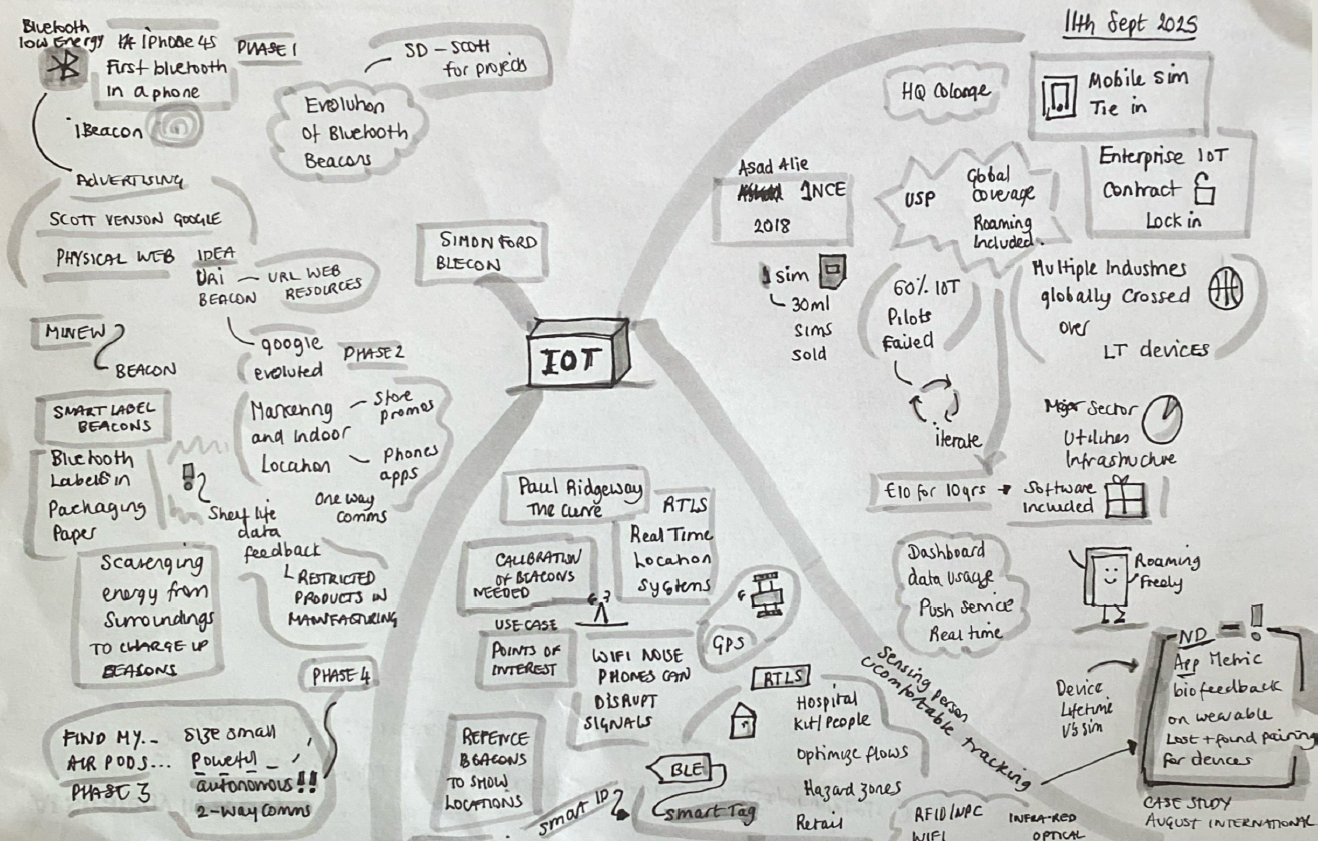 11th Sept 2025
Bluetooth
low Energy
iPhone 4s
First bluetooth
in a phone
PHASE 1
iBeacon
SD - Scott
for projects
Evolution
of Bluetooth
Beacons
ADVERTISING
SCOTT VENSON GOOGLE
PHYSICAL WEB
IDEA
URI
BEACON
URL WEB
RESOURCES
MINEW
BEACON
google
evoluted
PHASE 2
SMART LABEL
BEACONS
Marketing
and Indoor
Location
Store
promos
Phones
apps
Bluetooth
Labels in
Packaging
Paper
One way
comms
Shelf life
data
feedback
RESTRICTED
PRODUCTS IN
MANUFACTURING
Scavenging
energy from
Surroundings
TO CHARGE UP
BEASONS
PHASE 4
FIND MY...
AIR PODS...
PHASE 3
Size small
Powerful
autonomous!!
2-way comms
SIMON FORD
BLECON
IOT
Paul Ridgeway
The Curve
RTLS
Real Time
Location
Systems
CALIBRATION
OF BEACONS
NEEDED
USE CASE
POINTS OF
INTEREST
WIFI NOISE
PHONES CAN
DISRUPT
SIGNALS
GPS
REFENCE
BEACONS
TO SHOW
LOCATIONS
smart ID
BLE
smart Tag
RTLS
Hospital
Kit/People
optimize flows
Hazard zones
Retail
Sensing person
Ucomfortable tracking
RFID/NPC
WIFI
INFRA-RED
OPTICAL
HQ Colonge
Mobile Sim
Tie in
Asad Alie
1NCE
2018
USP
Global
Coverage
Roaming
Included.
Enterprise IoT
Contract
Lock in
1 sim
30ml
sims
sold
60% IOT
Pilots
Failed
iterate
Multiple Industries
globally Crossed
over
LT devices
Major Sector
Utilities
Infrastructure
€10 for 10yrs
Software
included
Dashboard
data usage
Push service
Real time
Roaming
freely
Device
Lifetime
V's sim
ND
App Metric
biofeedback
on wearable
Lost + found pairing
for devices
CASE STUDY
AUGUST INTERNATIONAL